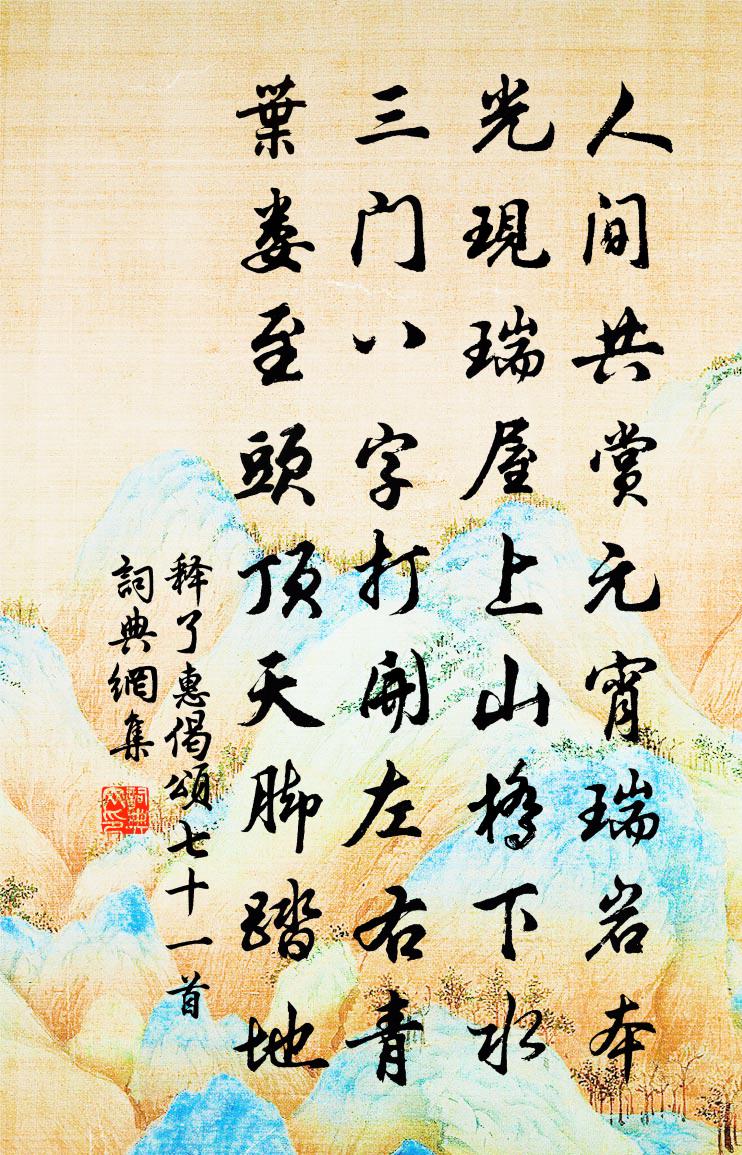 人間共赏元宵瑞岩本
光現瑞屋上山橋下水
三门八字打開左右青
葉娄至頭顶天脚踏地
释了惠偈頌七十一首
詞典網集